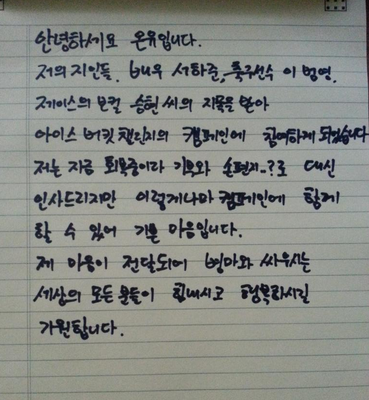 안녕하세요 온유입니다.
저의 지인들, 배우 서하준, 축구선수 이 범영,
제이스의 보컬 승현 씨의 지목을 받아
아이스 버킷 챌린지의 캠페인에 참여하게 되었습니다
저는 지금 회복중이라 기부와 손편지..?로 대신
인사드리지만 이렇게나마 캠페인에 함께
할 수 있어 기쁜 마음입니다.
제 마음이 전달되어 병마와 싸우시는
세상의 모든 분들이 힘내시고 행복하시길
기원합니다.